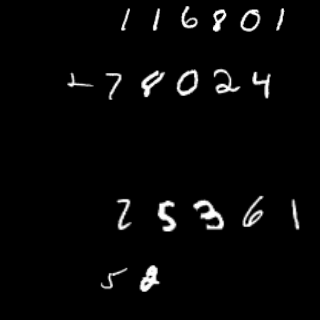 116801
+78024
25361
58